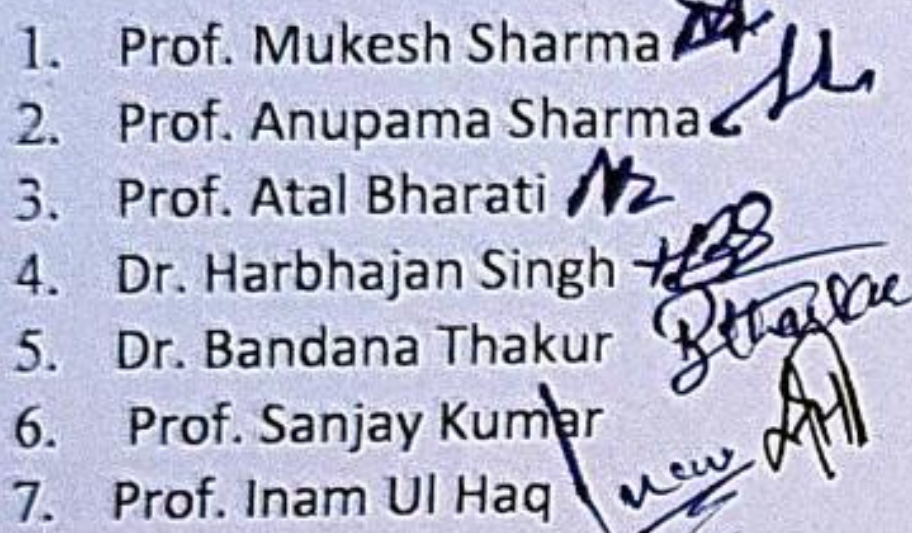 1. Prof. Mukesh Sharma
2. Prof. Anupama Sharma
3. Prof. Atal Bharati
4. Dr. Harbhajan Singh
5. Dr. Bandana Thakur
6. Prof. Sanjay Kumar
7. Prof. Inam Ul Haq